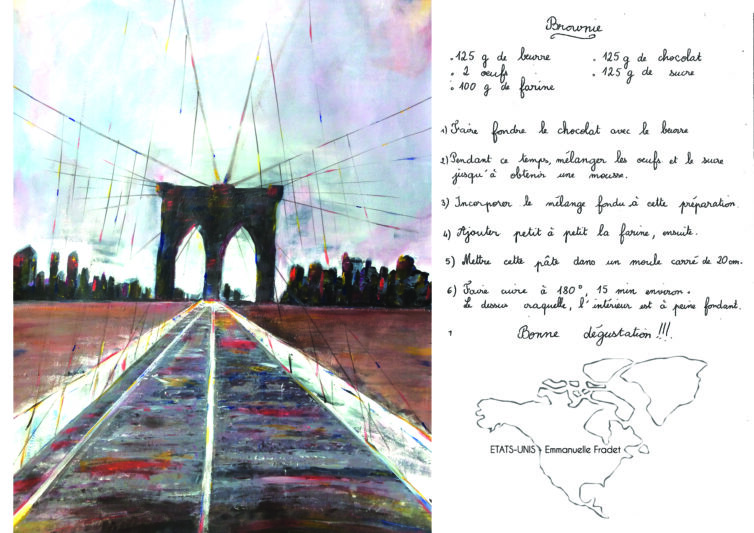 Brownie
. 125 g de beurre . 125 g de chocolat
. 2 oeufs . 125 g de sucre
. 100 g de farine
1) Faire fondre le chocolat avec le beurre
2) Pendant ce temps, mélanger les oeufs et le sucre
jusqu'à obtenir une mousse.
3) Incorporer le mélange fondu à cette préparation.
4) Ajouter petit à petit la farine, ensuite.
5) Mettre cette pâte dans un moule carré de 20 cm.
6) Faire cuire à 180°, 15 min environ.
Le dessus craquelle, l'intérieur est à peine fondant.
Bonne dégustation !!!
ETATS-UNIS - Emmanuelle Fradet